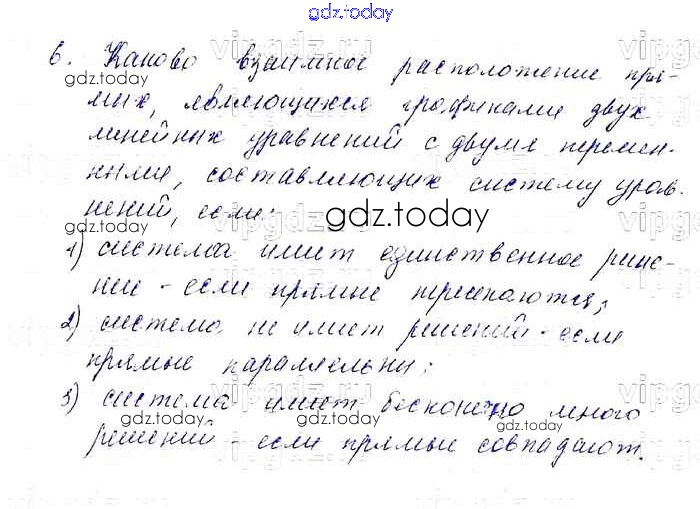 gdz.today
6. Каково взаимное расположение пря-
мых, являющихся графиками двух
линейных уравнений с двумя перемен-
ными, составляющих систему урав-
нений, если:
gdz.today
1) система имеет единственное реше-
ние - если прямые пересекаются;
2) система не имеет решений - если
прямые параллельны;
3) система имеет бесконечно много
решений - если прямые совпадают.